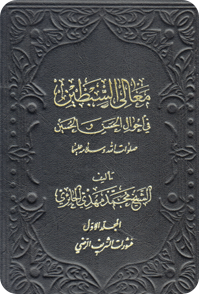 معالي السبطين
في احوال الحسن والحسين
صلوات الله وسلامه عليهما
تأليف
الشيخ محمد مهدي الحائري
المجلد الاول
منشورات الشريف الرضي